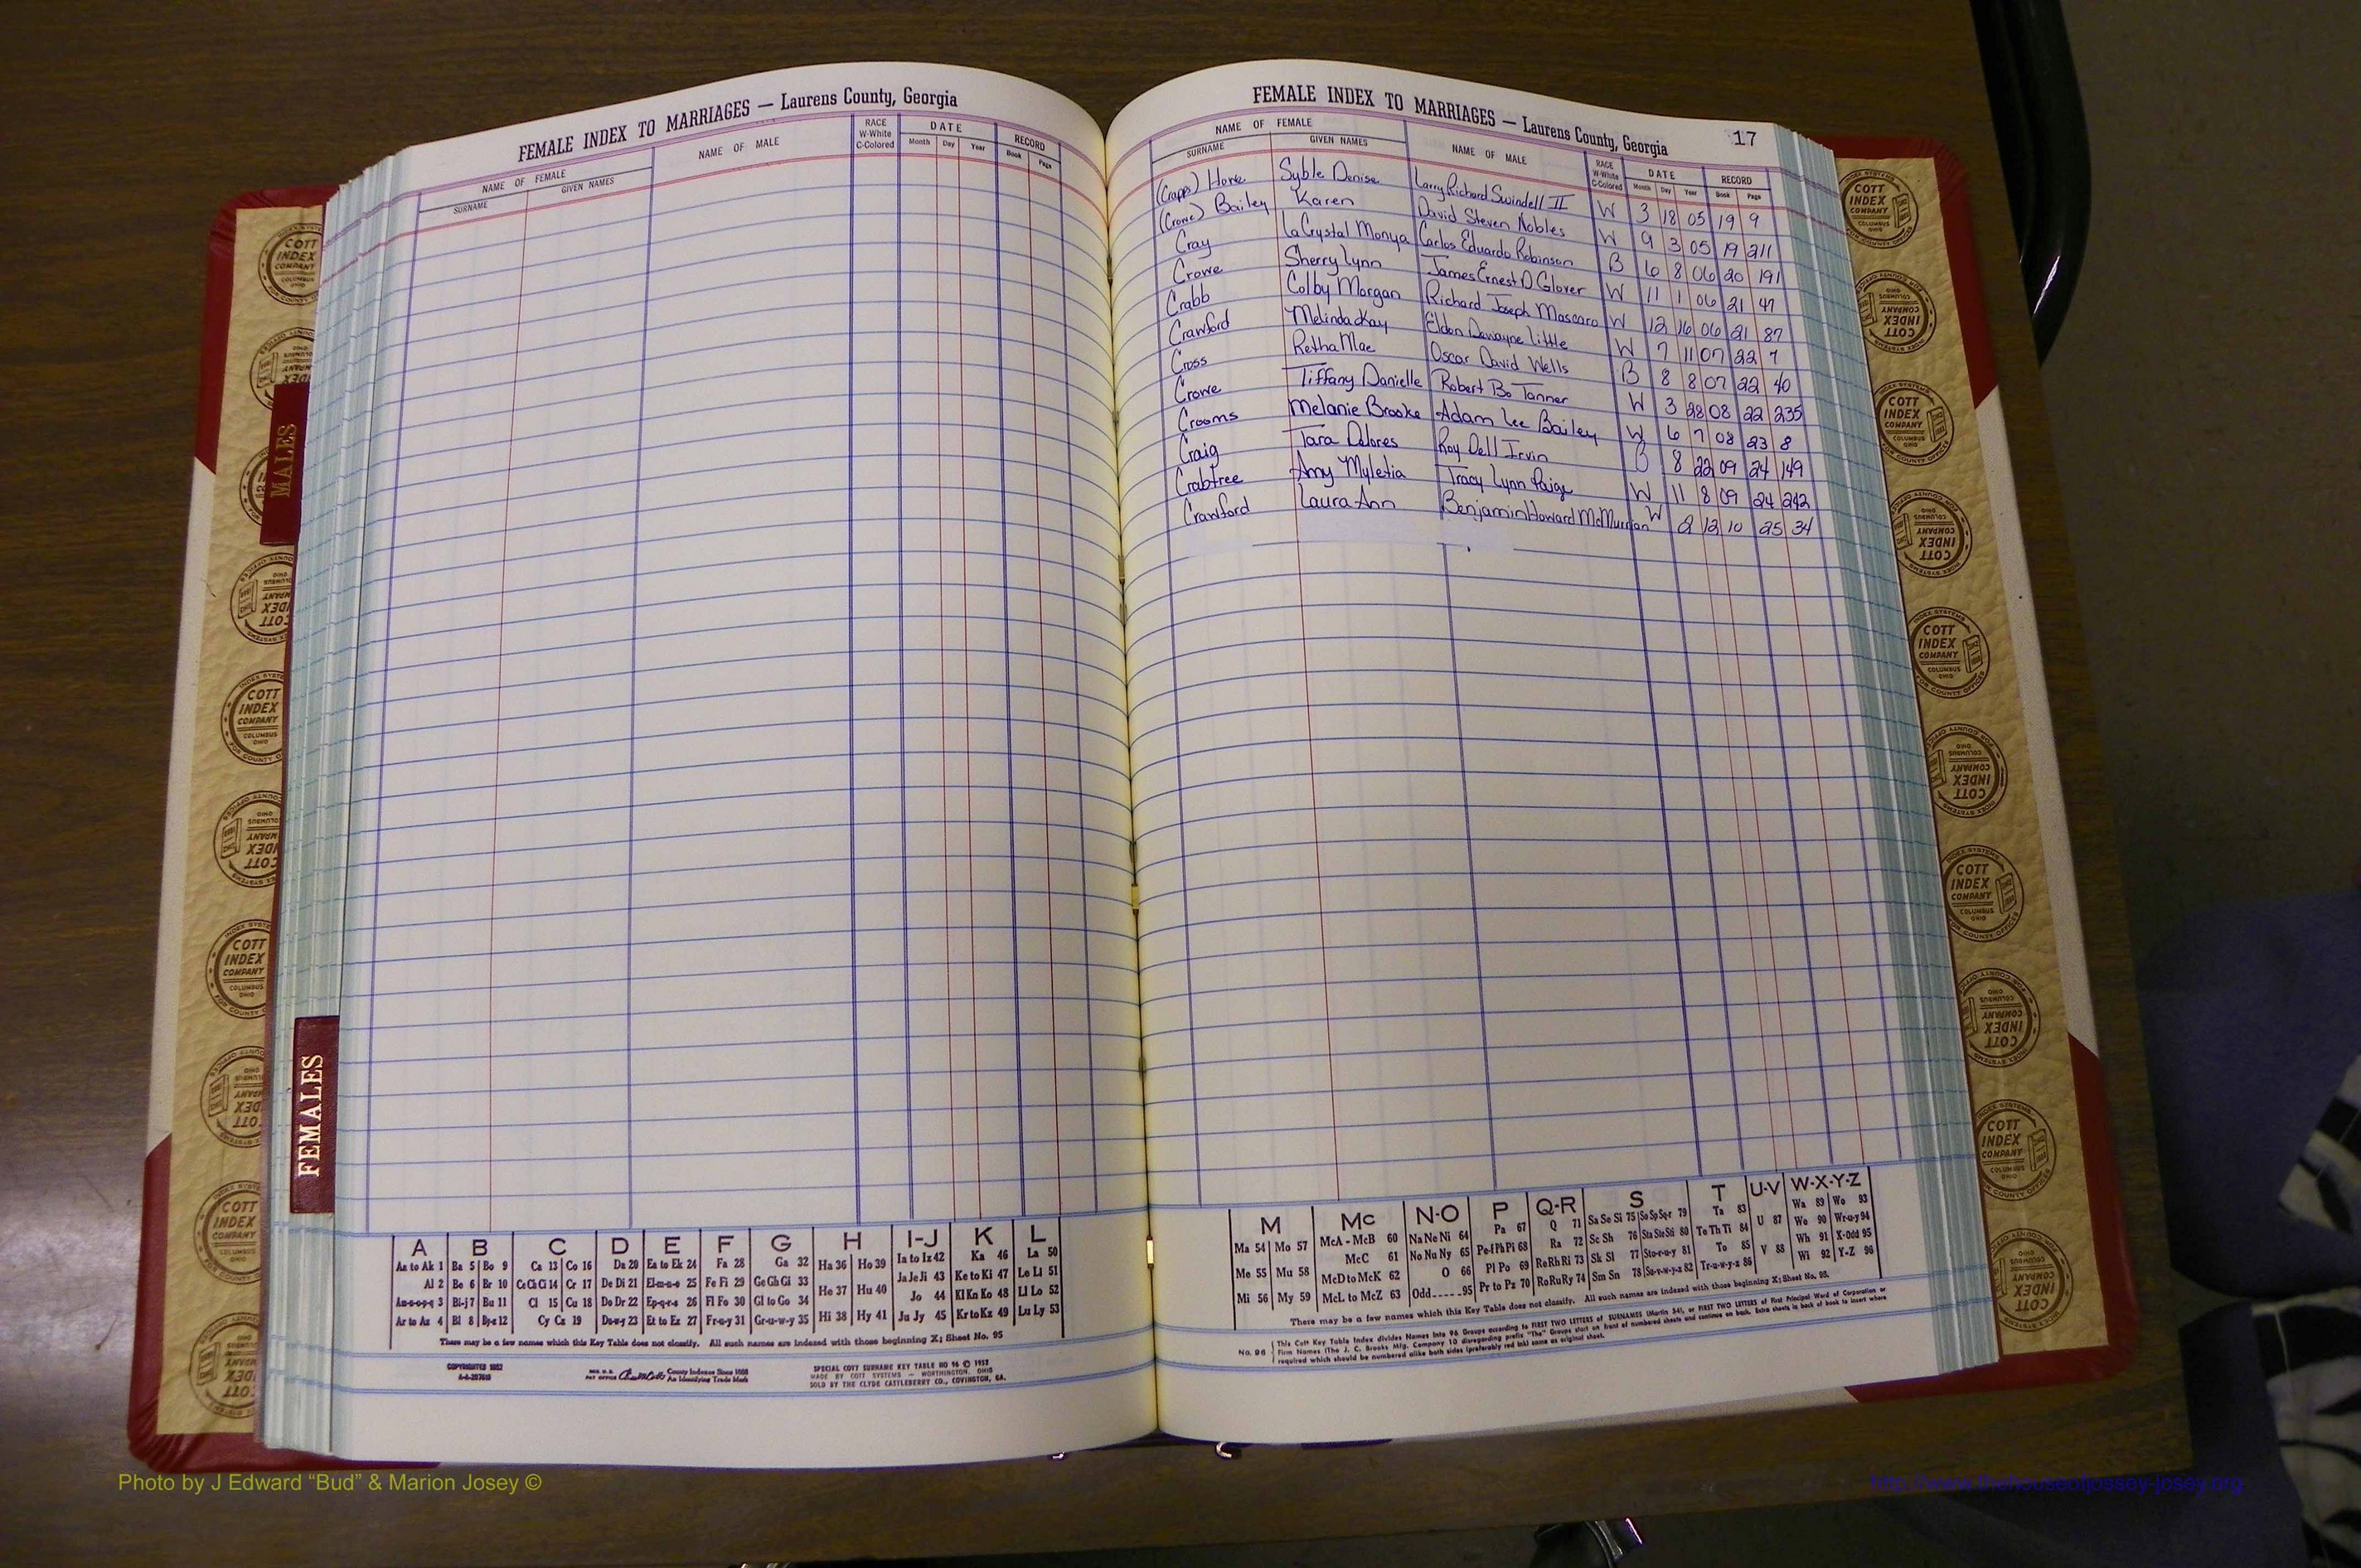 FEMALE INDEX TO MARRIAGES — Laurens County, Georgia
NAME OF FEMALE
SURNAME GIVEN NAMES
NAME OF MALE
RACE W-White C-Colored
DATE
Month Day Year
RECORD
Book Page
FEMALE INDEX TO MARRIAGES — Laurens County, Georgia 17
NAME OF FEMALE
SURNAME GIVEN NAMES
NAME OF MALE
RACE W-White C-Colored
DATE
Month Day Year
RECORD
Book Page
(Crapps) Syble Denise Larry Richard Swindell II W 3 18 05 19 9
(Crowe) Bailey Karen David Steven Nobles W 9 3 05 19 211
Cray LaCrystal Monya Carlos Eduardo Robinson B 6 8 06 20 191
Crowe Sherry Lynn James Ernest D Glover W 11 1 06 21 47
Crabb Colby Morgan Richard Joseph Mascaro W 12 16 06 21 87
Crawford Melinda Kay Eldon Dewayne Little W 7 11 07 22 7
Cross Retha Mae Oscar David Wells B 8 8 07 22 40
Crowe Tiffany Danielle Robert Bo Tanner W 3 28 08 22 235
Crooms Melanie Brooke Adam Lee Bailey W 6 7 08 23 8
Craig Tara Delores Roy Dell Irvin B 8 22 09 24 149
Crabtree Amy Myletia Tracy Lynn Paige W 11 8 09 24 242
Crawford Laura Ann Benjamin Howard W 2 12 10 25 34
MALES
FEMALES
A B C D E F G H I-J K L
Aa to Ak 1 Ba 5 Bo 9 Ca 13 Co 16 Da 20 Ea to Ek 24 Fa 28 Ga 32 Ha 36 Ho 39 Ia to Iz 42 Ka 46 La 50
Al 2 Be 6 Br 10 Ce Ch Ci 14 Cr 17 De Di 21 El-m-n-o 25 Fe Fi 29 Ge Gh Gi 33 He 37 Hu 40 Ja Je Ji 43 Ke to Ki 47 Le Li 51
Am-n-o-p-q 3 Bi-j 7 Bu 11 Cl 15 Cu 18 Do Dr 22 Ep-q-r-s 26 Fl Fo 30 Gl to Go 34 Hi 38 Hy 41 Jo 44 Kl Kn Ko 48 Ll Lo 52
Ar to Az 4 Bl 8 By-z 12 Cy Cz 19 Du-w-y 23 Et to Ez 27 Fr-u-y 31 Gr-u-w-y 35 Ju Jy 45 Kr to Kz 49 Lu Ly 53
There may be a few names which this Key Table does not classify. All such names are indexed with those beginning X; Sheet No. 95
COPYRIGHTED 1952
County Indexes Since 1888
An Identifying Trade Mark
SPECIAL COTT SURNAME KEY TABLE NO 96 © 1952
MADE BY COTT SYSTEMS — WORTHINGTON, OHIO
SOLD BY THE CLYDE CASTLEBERRY CO., COVINGTON, GA.
M Mc N-O P Q-R S T U-V W-X-Y-Z
Ma 54 Mo 57 McA - McB 60 Na Ne Ni 64 Pa 67 Q 71 Sa Se Si 75 So Sp Sq-r 79 Ta 83 U 87 Wa 89 Wo 93
Me 55 Mu 58 McC 61 No Nu Ny 65 Pe-f Ph Pi 68 Ra 72 Sc Sh 76 Sta Ste Sti 80 Te Th Ti 84 V 88 We 90 Wr-u-y 94
Mi 56 My 59 McD to McK 62 O 66 Pl Po 69 Re Rh Ri 73 Sk Sl 77 Sto-r-u-y 81 To 85 Wh 91 X-Odd 95
McL to McZ 63 Odd 95 Pr to Pz 70 Ro Ru Ry 74 Sm Sn 78 Su-v-w-y-z 82 Tr-u-w-y-z 86 Wi 92 Y-Z 96
There may be a few names which this Key Table does not classify. All such names are indexed with those beginning X; Sheet No. 95.
No. 96 This Cott Key Table Index divides Names into 96 Groups according to FIRST TWO LETTERS of SURNAMES (Martin 54), or FIRST TWO LETTERS of First Principal Word of Corporation or
Firm Names (The J. C. Brooks Mfg. Company 10 disregarding prefix "The" Groups start on front of numbered sheets and continue on back. Extra sheets in back of book to insert where
required which should be numbered alike both sides (preferably red ink) same as original sheet.
COTT INDEX COMPANY COLUMBUS OHIO
INDEX SYSTEMS FOR COUNTY OFFICES
Photo by J Edward “Bud” & Marion Josey ©
http://www.thehouseofjossey-josey.org